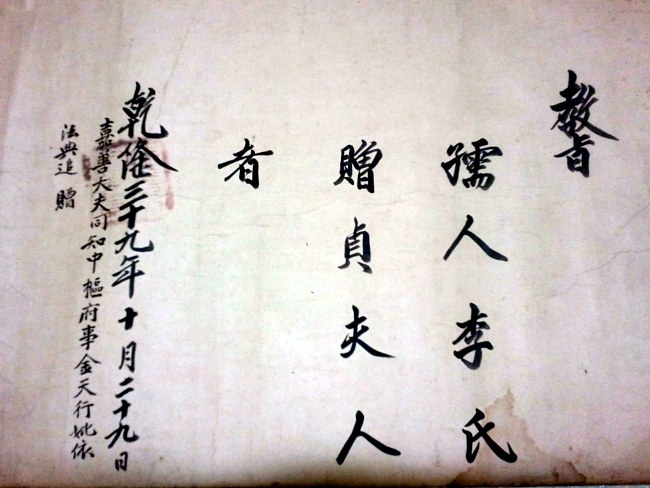 教旨
孺人李氏
贈貞夫人
者
乾隆三十九年十月二十九日
嘉善大夫同知中樞府事金天行妣依
法典追贈